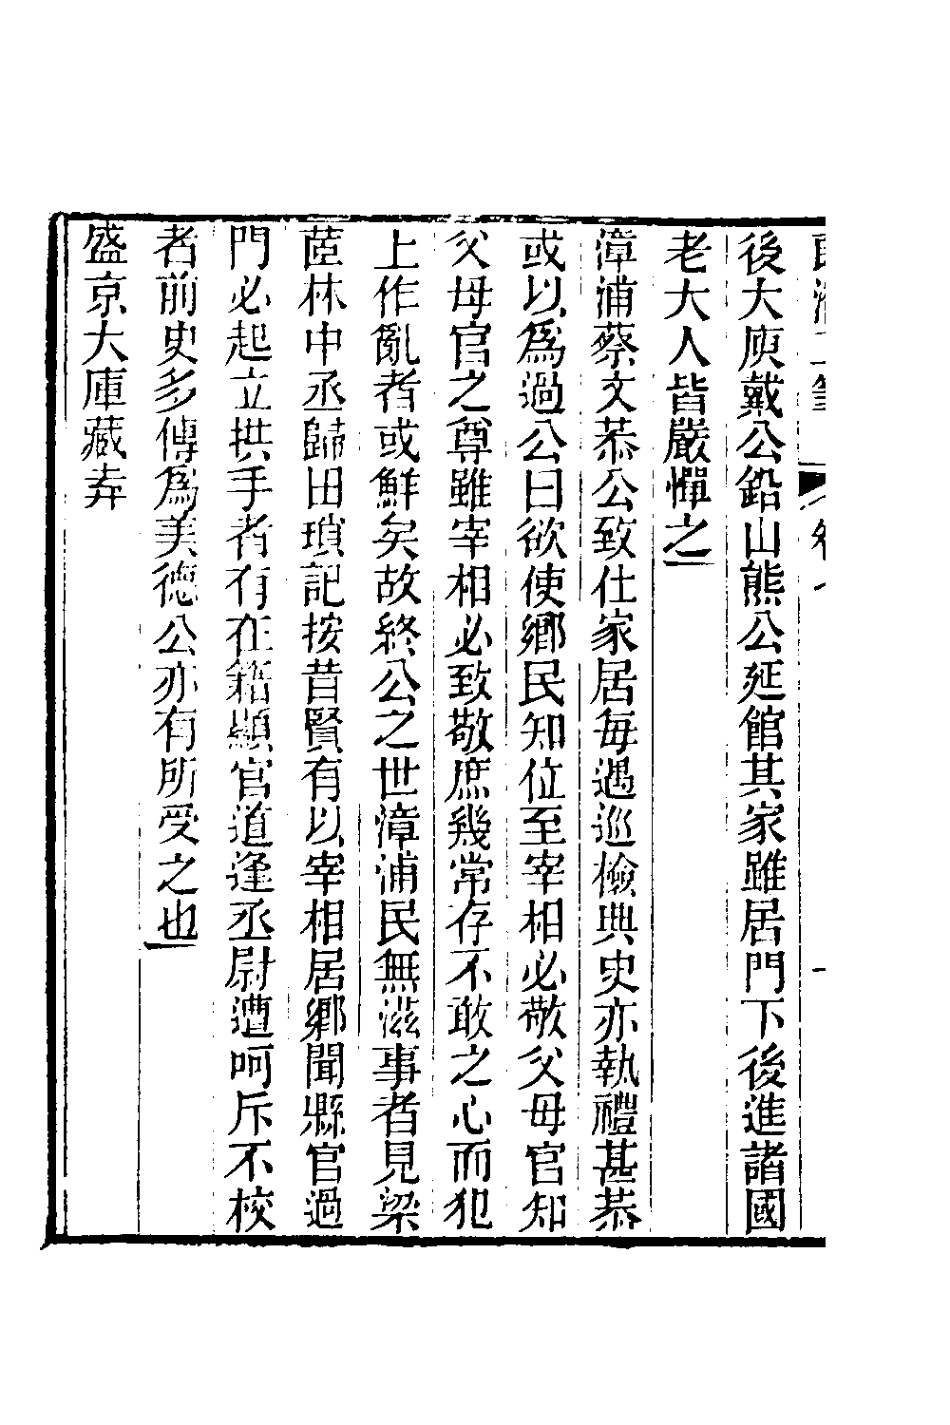 後大庾戴公鉛山熊公延館其家雖居門下後進諸國
老大人皆嚴憚之
漳浦蔡文恭公致仕家居每遇巡檢典史亦執禮甚恭
或以爲過公曰欲使鄉民知位至宰相必敬父母官知
父母官之尊雖宰相必致敬庶幾常存不敢之心而犯
上作亂者或鮮矣故終公之世漳浦民無滋事者見梁
茝林中丞歸田瑣記按昔賢有以宰相居鄉聞縣官過
門必起立拱手者有在籍顯官道逢丞尉遭呵斥不校
者前史多傳爲美德公亦有所受之也
盛京大庫藏弆